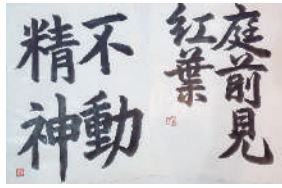 庭前見
紅葉
不動
精神